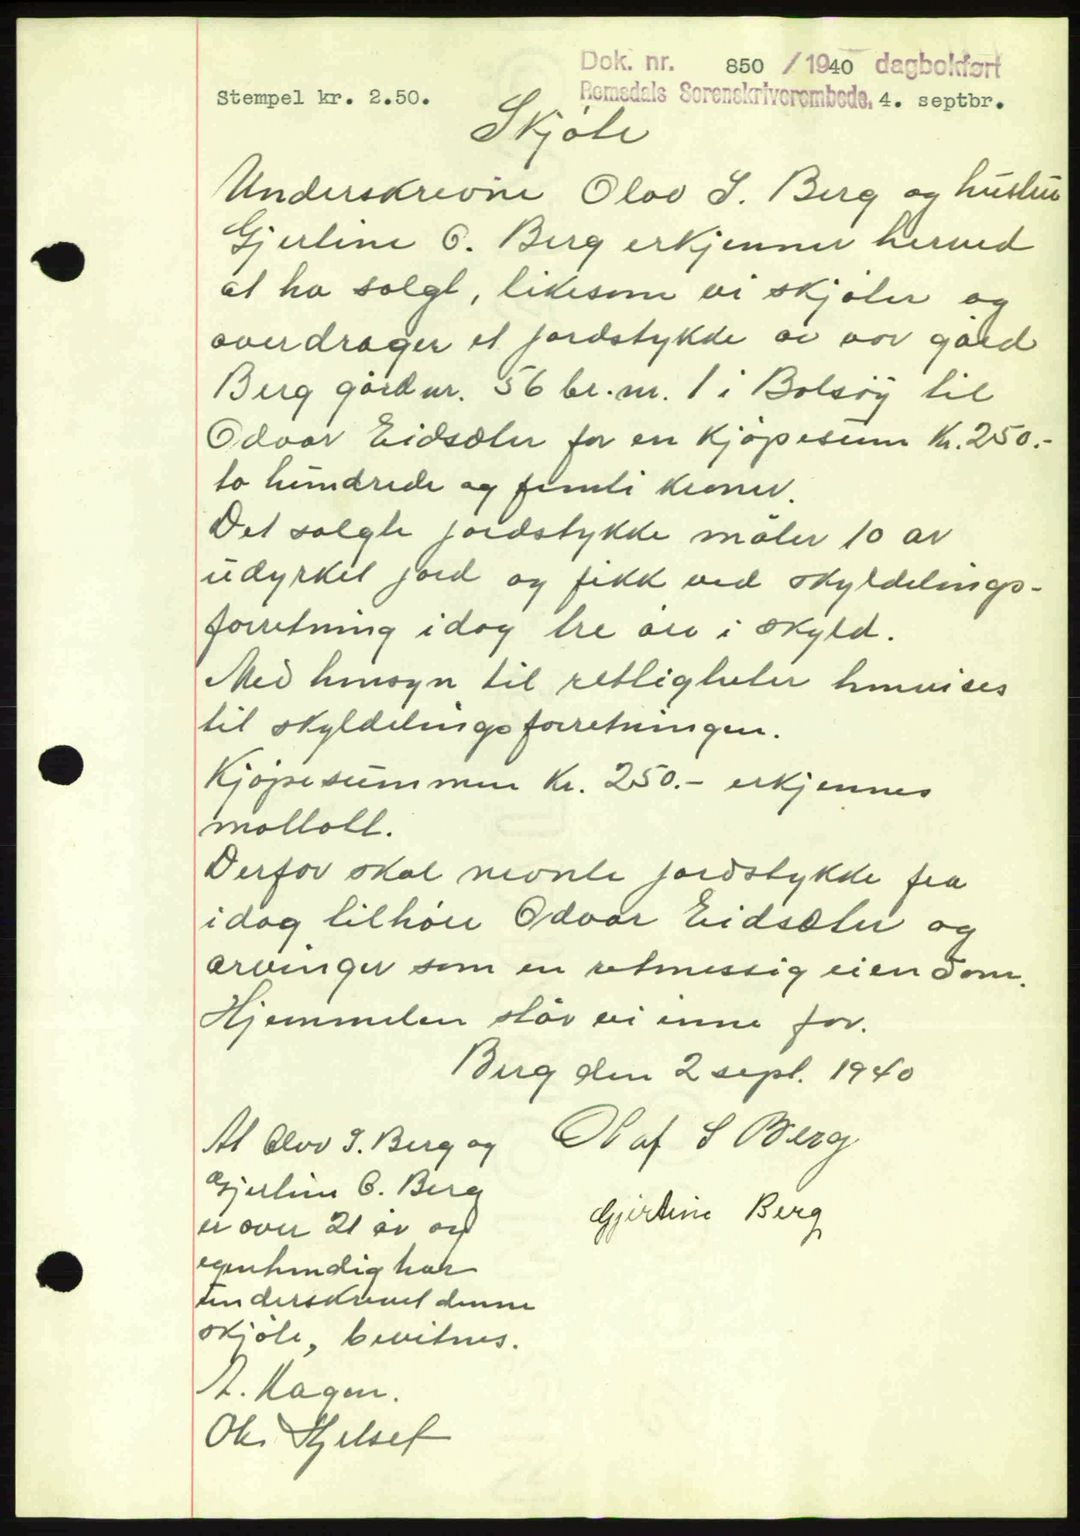 Dok. nr. 850 / 1940 dagbokført
Romsdals Sorenskriverembede, 4. septbr.
Stempel kr. 2.50.
Skjøte
Underskrevne Olav S. Berg og hustru
Gjertine O. Berg erkjenner herved
at ha solgt, likesom vi skjøter og
overdrager et jordstykke av vor gård
Berg gårdnr. 56 br.nr. 1 i Bolsøy til
Odvar Eidsæter for en kjøpesum kr. 250.-
to hundrede og femti kroner.
Det solgte jordstykke måler 10 ar
udyrket jord og fikk ved skyldelings-
forretning idag tre øre i skyld.
Med hensyn til rettigheter henvises
til skyldelingsforretningen.
Kjøpesummen kr. 250.- erkjennes
mottatt.
Derfor skal nevnte jordstykke fra
idag tilhøre Odvar Eidsæter og
arvinger som en retmessig eiendom.
Hjemmelen står vi inne for.
Berg den 2 sept. 1940
Olaf S Berg
Gjertine Berg
At Olav S. Berg og
Gjertine O. Berg
er over 21 år og
egenhendig har
underskrevet denne
skjøte, bevitnes.
A. Hagen.
Ole Hjelset